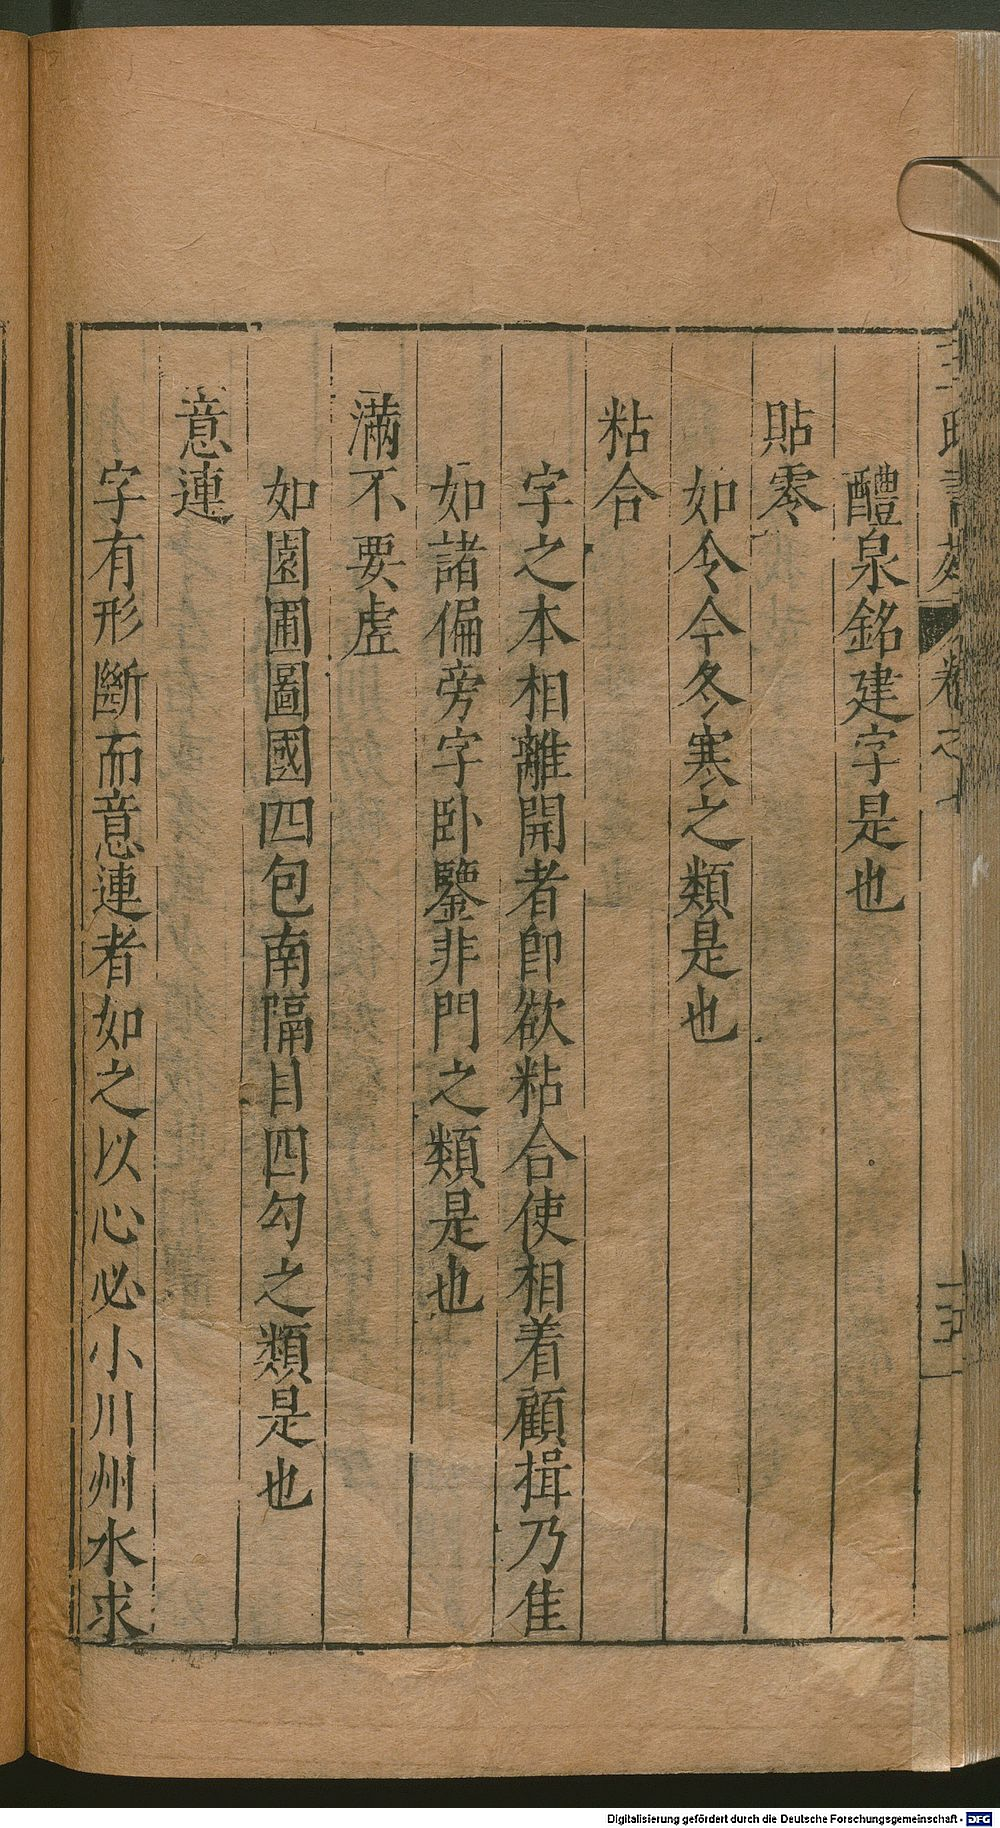 醴泉銘建字是也
貼零
如令今冬寒之類是也
粘合
字之本相離開者卽欲粘合使相着顧揖乃佳
如諸偏旁字卧鑒非門之類是也
滿不要虛
如園圃圖國四包南隔目四勾之類是也
意連
字有形斷而意連者如之以心必小川州水求
Digitalisierung gefördert durch die Deutsche Forschungsgemeinschaft - DFG